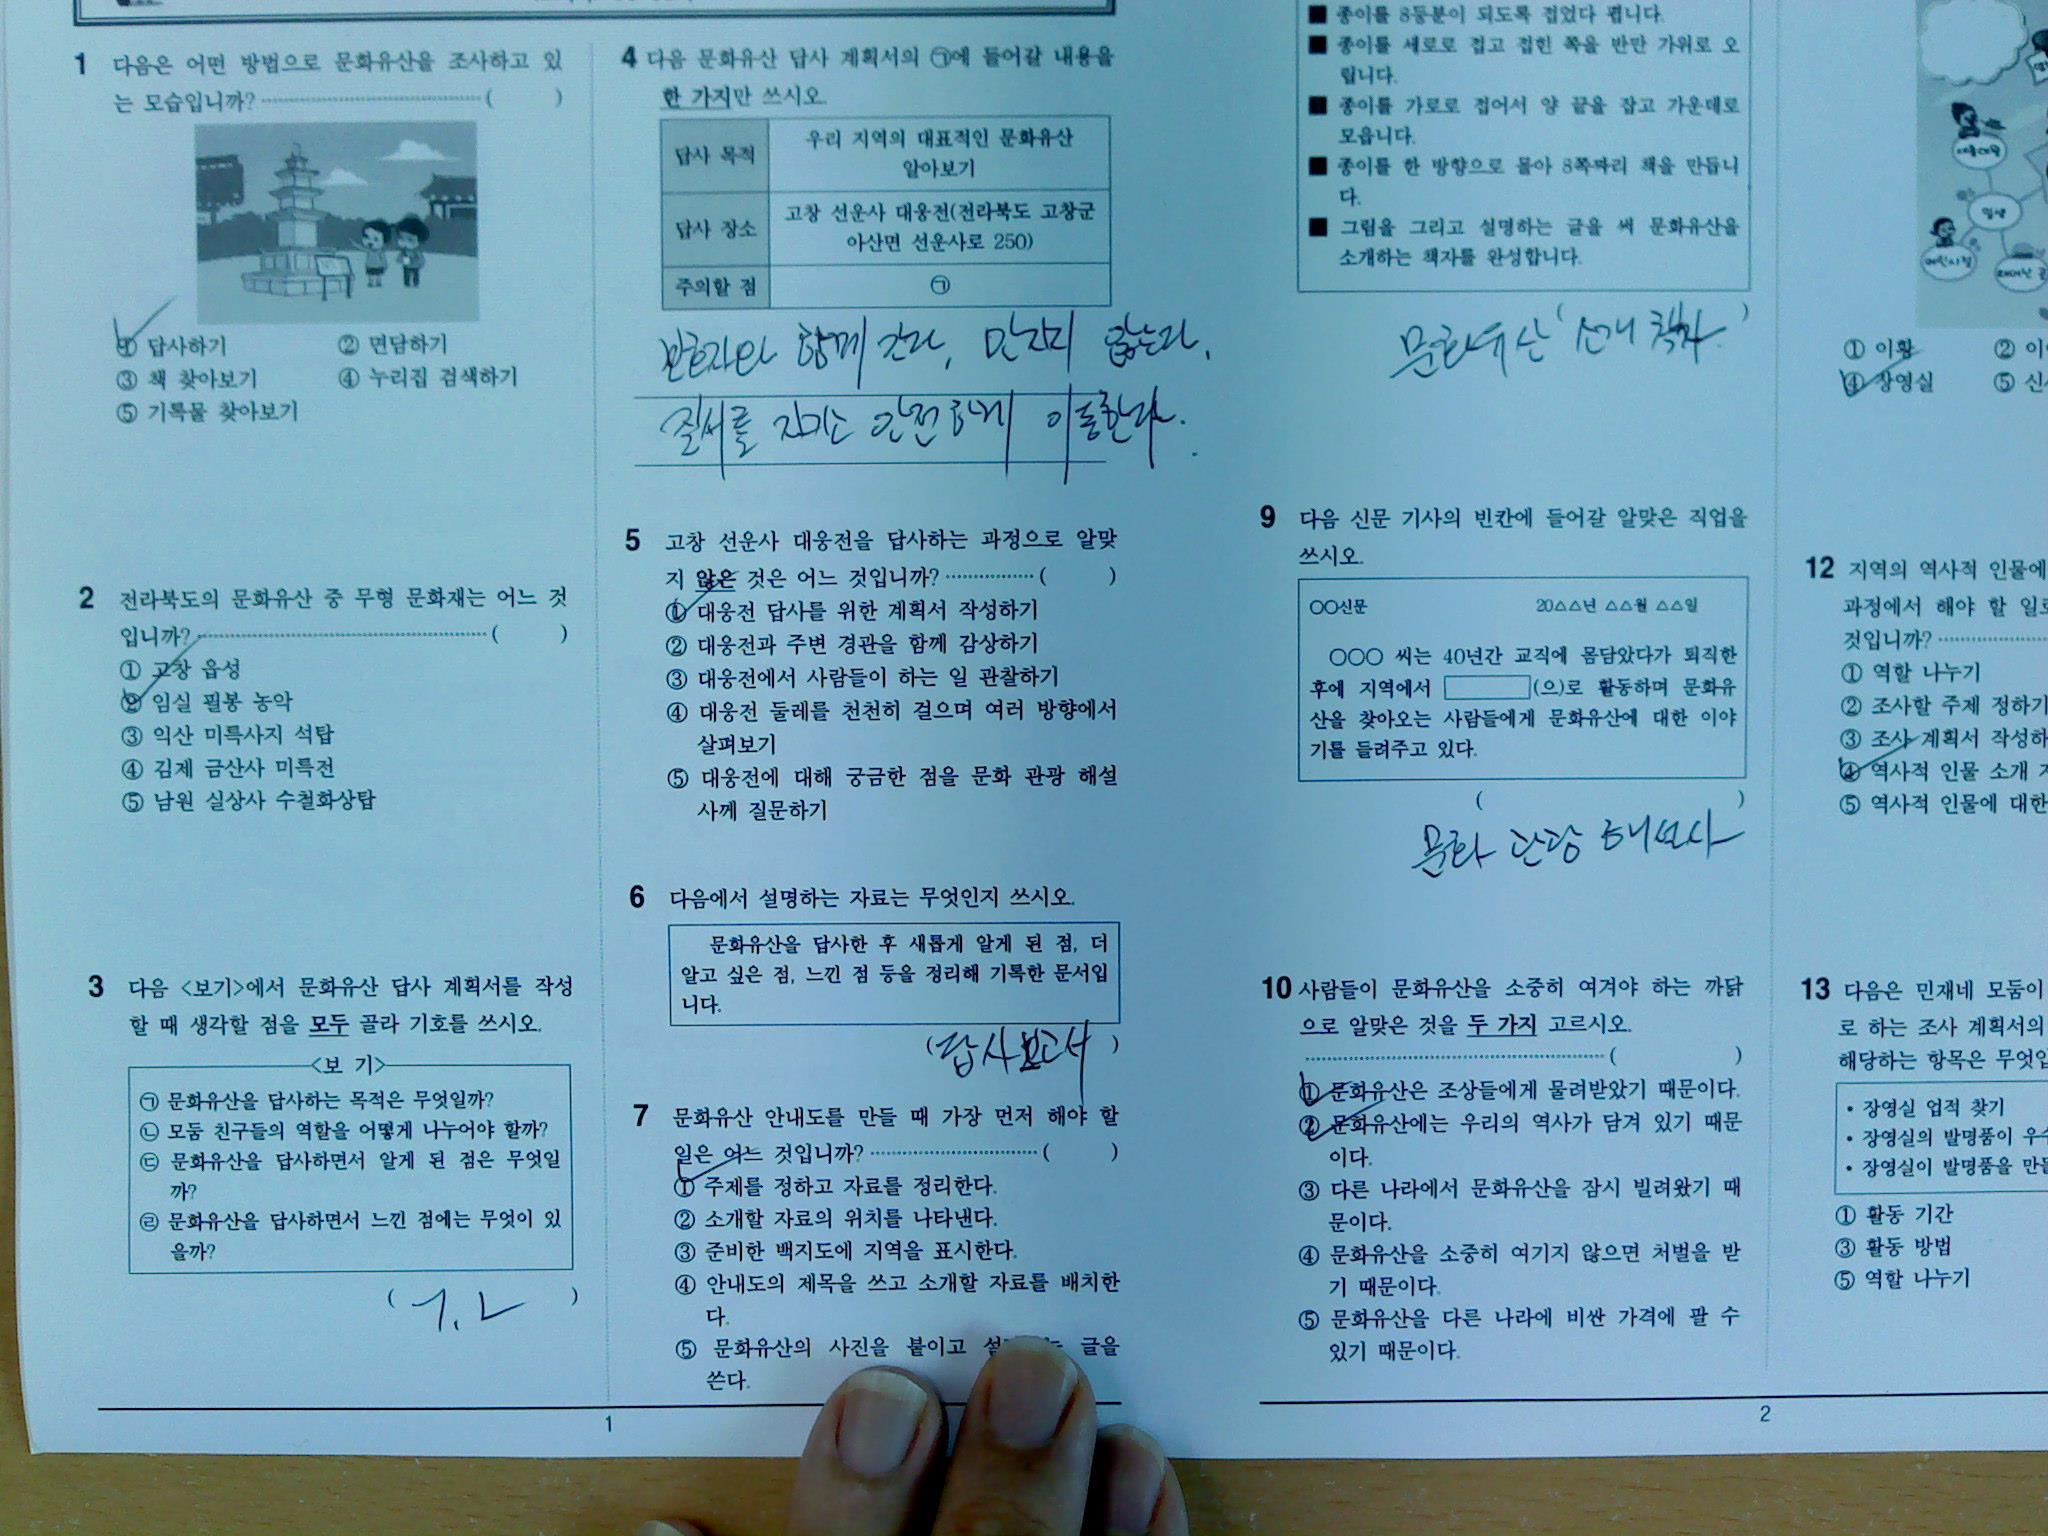 1 다음은 어떤 방법으로 문화유산을 조사하고 있
는 모습입니까? ( )
① 답사하기 ② 면담하기
③ 책 찾아보기 ④ 누리집 검색하기
⑤ 기록물 찾아보기
2 전라북도의 문화유산 중 무형 문화재는 어느 것
입니까? ( )
① 고창 읍성
② 임실 필봉 농악
③ 익산 미륵사지 석탑
④ 김제 금산사 미륵전
⑤ 남원 실상사 수철화상탑
3 다음 <보기>에서 문화유산 답사 계획서를 작성
할 때 생각할 점을 모두 골라 기호를 쓰시오.
<보 기>
㉠ 문화유산을 답사하는 목적은 무엇일까?
㉡ 모둠 친구들의 역할을 어떻게 나누어야 할까?
㉢ 문화유산을 답사하면서 알게 된 점은 무엇일
까?
㉣ 문화유산을 답사하면서 느낀 점에는 무엇이 있
을까?
( ㄱ, ㄴ )
4 다음 문화유산 답사 계획서의 ㉠에 들어갈 내용을
한 가지만 쓰시오.
답사 목적 우리 지역의 대표적인 문화유산
알아보기
답사 장소 고창 선운사 대웅전(전라북도 고창군
아산면 선운사로 250)
주의할 점 ㉠
보호자와 함께 간다, 만지지 않는다,
질서를 지키고 안전하게 이동한다.
5 고창 선운사 대웅전을 답사하는 과정으로 알맞
지 않은 것은 어느 것입니까? ( )
① 대웅전 답사를 위한 계획서 작성하기
② 대웅전과 주변 경관을 함께 감상하기
③ 대웅전에서 사람들이 하는 일 관찰하기
④ 대웅전 둘레를 천천히 걸으며 여러 방향에서
살펴보기
⑤ 대웅전에 대해 궁금한 점을 문화 관광 해설
사께 질문하기
6 다음에서 설명하는 자료는 무엇인지 쓰시오.
문화유산을 답사한 후 새롭게 알게 된 점, 더
알고 싶은 점, 느낀 점 등을 정리해 기록한 문서입
니다.
(답사보고서 )
7 문화유산 안내도를 만들 때 가장 먼저 해야 할
일은 어느 것입니까? ( )
① 주제를 정하고 자료를 정리한다.
② 소개할 자료의 위치를 나타낸다.
③ 준비한 백지도에 지역을 표시한다.
④ 안내도의 제목을 쓰고 소개할 자료를 배치한
다.
⑤ 문화유산의 사진을 붙이고 글을
쓴다.
1
■ 종이를 8등분이 되도록 접었다 폅니다.
■ 종이를 세로로 접고 접힌 쪽을 반만 가위로 오
립니다.
■ 종이를 가로로 접어서 양 끝을 잡고 가운데로
모읍니다.
■ 종이를 한 방향으로 몰아 8쪽짜리 책을 만듭니
다.
■ 그림을 그리고 설명하는 글을 써 문화유산을
소개하는 책자를 완성합니다.
( )
문화유산 소개 책자
9 다음 신문 기사의 빈칸에 들어갈 알맞은 직업을
쓰시오.
○○신문 20△△년 △△월 △△일
○○○ 씨는 40년간 교직에 몸담았다가 퇴직한
후에 지역에서 (으)로 활동하며 문화유
산을 찾아오는 사람들에게 문화유산에 대한 이야
기를 들려주고 있다.
( )
문화 관광 해설사
10 사람들이 문화유산을 소중히 여겨야 하는 까닭
으로 알맞은 것을 두 가지 고르시오.
( )
① 문화유산은 조상들에게 물려받았기 때문이다.
② 문화유산에는 우리의 역사가 담겨 있기 때문
이다.
③ 다른 나라에서 문화유산을 잠시 빌려왔기 때
문이다.
④ 문화유산을 소중히 여기지 않으면 처벌을 받
기 때문이다.
⑤ 문화유산을 다른 나라에 비싼 가격에 팔 수
있기 때문이다.
① 이황 ②
④ 장영실 ⑤
12 지역의 역사적 인물에
과정에서 해야 할
것입니까?
① 역할 나누기
② 조사할 주제 정하기
③ 조사 계획서
④ 역사적 인물 소개
⑤ 역사적 인물에 대한
13 다음은 민재네 모둠이
로 하는 조사 계획서의
해당하는 항목은
• 장영실 업적 찾기
• 장영실의 발명품이
• 장영실이 발명품을
① 활동 기간
③ 활동 방법
⑤ 역할 나누기
2